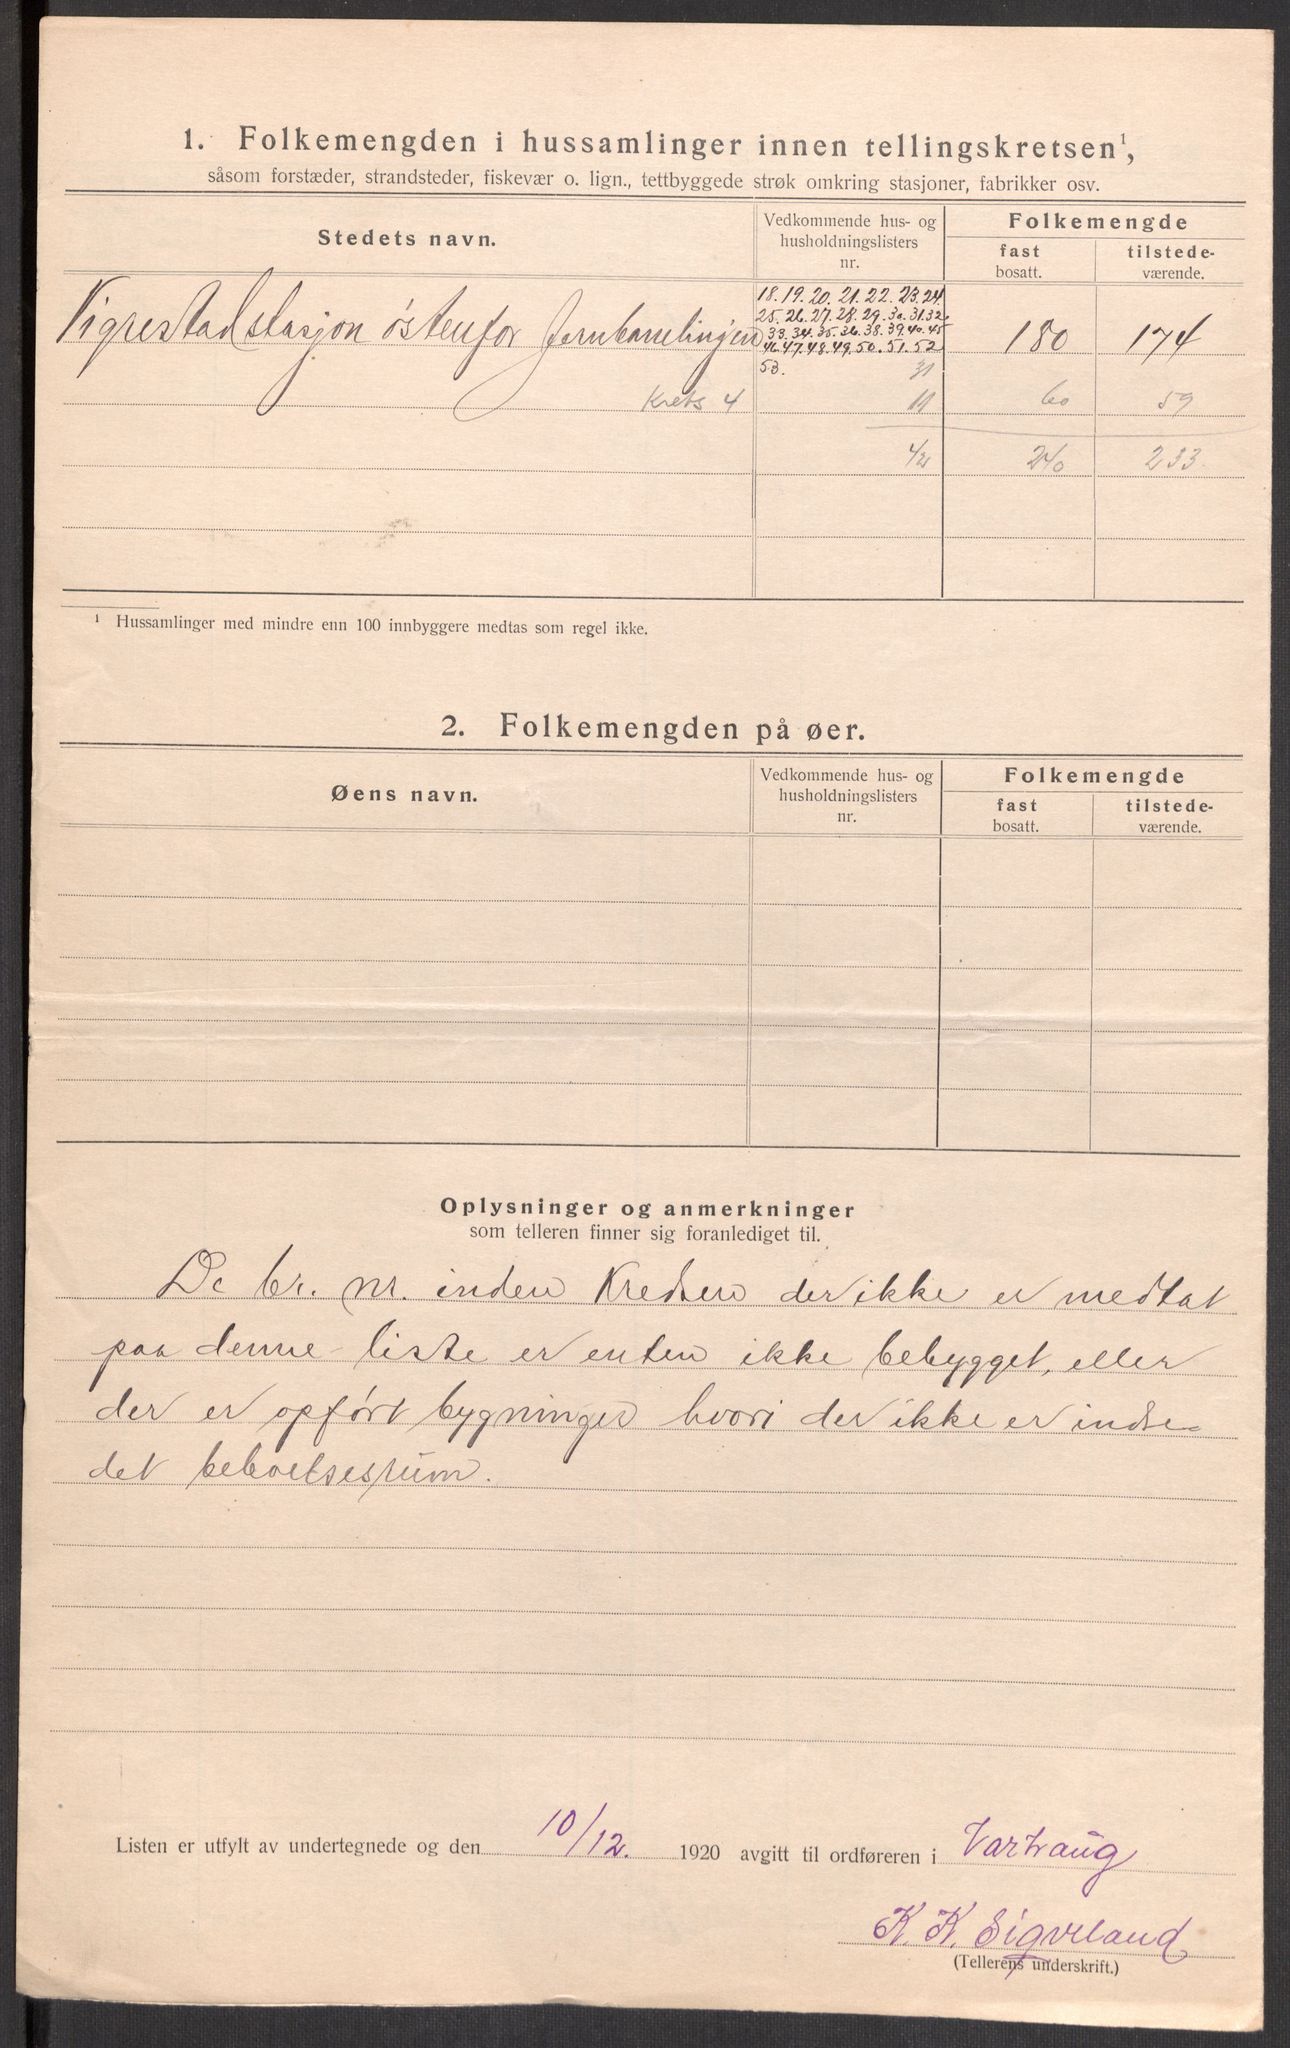 1. Folkemengden i hussamlinger innen tellingskretsen¹,
såsom forstæder, strandsteder, fiskevær o. lign., tettbyggede strøk omkring stasjoner, fabrikker osv.
Stedets navn.
Vedkommende hus- og
husholdningslisters
nr.
Folkemengde
fast
bosatt.
tilstede-
værende.
Vigrestad stasjon östenfor Jernbanelinjen
18. 19. 20. 21. 22. 23. 24.
25. 26. 27. 28. 29. 30. 31. 32.
33. 34. 35. 36. 38. 39. 40. 45
46. 47. 48. 49. 50. 51. 52
53.
180
174
31
Krets 4
11
60
59
42
240
233.
¹ Hussamlinger med mindre enn 100 innbyggere medtas som regel ikke.
2. Folkemengden på øer.
Øens navn.
Vedkommende hus- og
husholdningslisters
nr.
Folkemengde
fast
bosatt.
tilstede-
værende.
Oplysninger og anmerkninger
som telleren finner sig foranlediget til.
De br. nr. inden Kredsen der ikke er medtat
paa denne liste er enten ikke bebygget, eller
der er opført bygninger hvori der ikke er indre-
det beboelsesrum.
Listen er utfylt av undertegnede og den 10/12. 1920 avgitt til ordføreren i Varhaug
K. K. Sigveland
(Tellerens underskrift.)